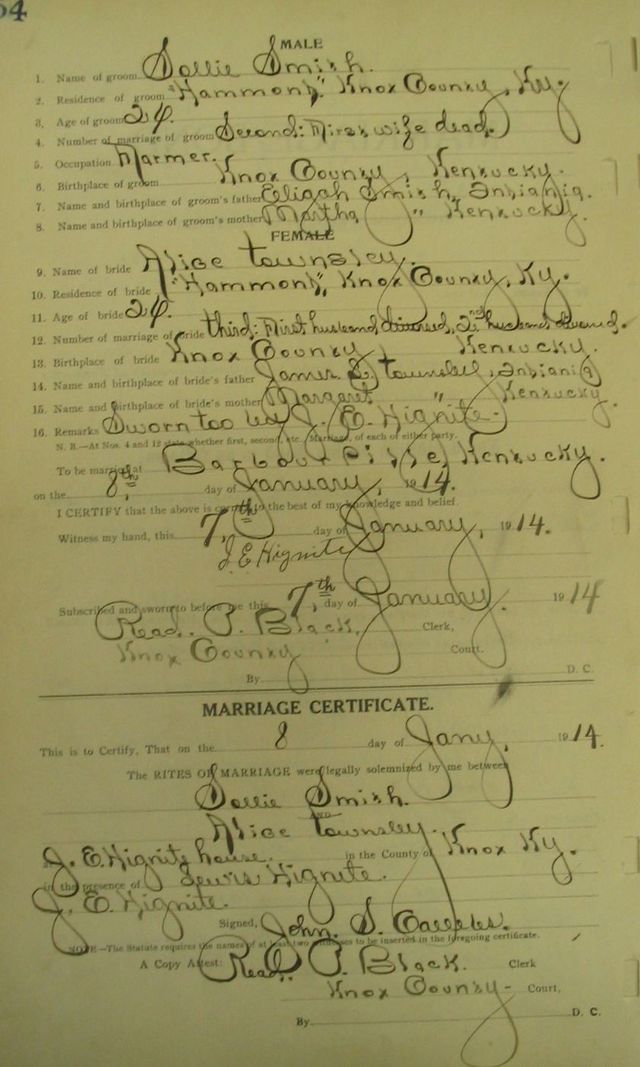 54
MALE
1. Name of groom Sollie Smith.
2. Residence of groom "Hammond," Knox County, Ky.
3. Age of groom 24.
4. Number of marriage of groom Second: First wife dead.
5. Occupation Farmer.
6. Birthplace of groom Knox County, Kentucky.
7. Name and birthplace of groom's father Eligah Smith, Indiania.
8. Name and birthplace of groom's mother Martha " Kentucky.
FEMALE
9. Name of bride Alice Townsley.
10. Residence of bride "Hammond," Knox County, Ky.
11. Age of bride 24.
12. Number of marriage of bride third: First husband, 2nd husband
13. Birthplace of bride Knox County Kentucky.
14. Name and birthplace of bride's father James Townsley, Indiania
15. Name and birthplace of bride's mother Margaret " Kentucky.
16. Remarks Sworn too by J. E. Hignite.
N. B.—At Nos. 4 and 12 state whether first, second, etc. Marriage, of each of either party.
To be married at Barbourville, Kentucky.
on the 8th day of January, 1914.
I CERTIFY that the above is correct to the best of my knowledge and belief.
Witness my hand, this 7th day of January, 1914.
J E Hignite
Subscribed and sworn to before me this 7th, day of January. 1914
Read. P. Black, Clerk,
Knox County Court.
By D. C.
MARRIAGE CERTIFICATE.
This is to Certify, That on the 8 day of Jany, 1914.
The RITES OF MARRIAGE were legally solemnized by me between
Sollie Smith.
AND
Alice Townsley.
J. E. Hignite house. in the County of Knox Ky.
in the presence of Lewis Hignite.
J. E. Hignite.
Signed, John. S.
NOTE.—The Statute requires the names of at least two witnesses to be inserted in the foregoing certificate.
A Copy Attest: Read. P. Black. Clerk
Knox County - Court,
By D. C.